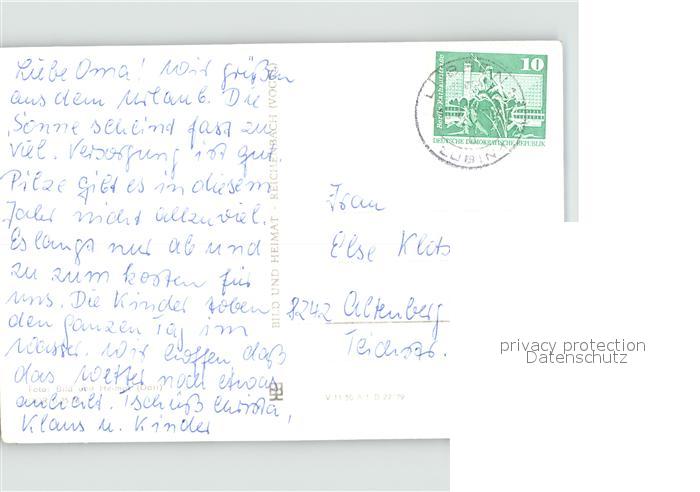 Liebe Oma! Wir grüßen
aus dem Urlaub. Die
Sonne scheint fast zu
viel. Versorgung ist gut
Pilze gibt es in diesem
Jahr nicht allzuviel.
Es langt nur ab und
zu zum kosten für
uns. Die Kinder toben
den ganzen Tag im
Wasser. Wir hoffen daß
das Wetter noch etwas
anhält. Tschüß Christa,
Klaus u. Kinder
Foto: Bild und Heimat
BILD UND HEIMAT · REICHENBACH (VOGTL)
V 11 50 A 1 D
10
Berlin, Rathausstraße
DEUTSCHE DEMOKRATISCHE REPUBLIK
LÜBZ
Frau
Else Klots
8242 Altenberg
Teichstr.
privacy protection
Datenschutz